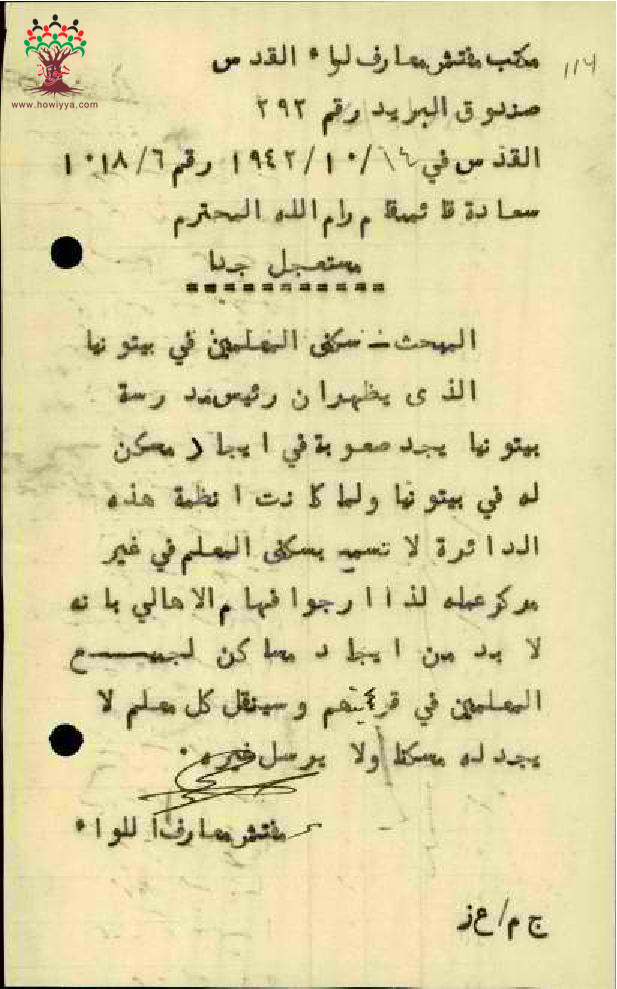 www.howiyya.com
١١٧
مكتب مفتش معارف لواء القدس
صندوق البريد رقم ٢٩٢
القدس في ١٤/١٠/١٩٤٢ رقم ١٠١٨/٦
سعادة قائمقام رام الله المحترم
مستعجل جدا
المبحث - سكنى المعلمين في بيتونيا
الذى يظهر ان رئيس مدرسة
بيتونيا يجد صعوبة في ايجار مسكن
له في بيتونيا ولما كانت انظمة هذه
الدائرة لا تسمح بسكنى المعلم في غير
مركز عمله لذا ارجو افهام الاهالي بانه
لا بد من ايجاد مساكن لجميع
المعلمين في قريتهم وسينقل كل معلم لا
يجد له مسكنا ولا يرسل غيره .
مفتش معارف اللواء
ج م/ع ز